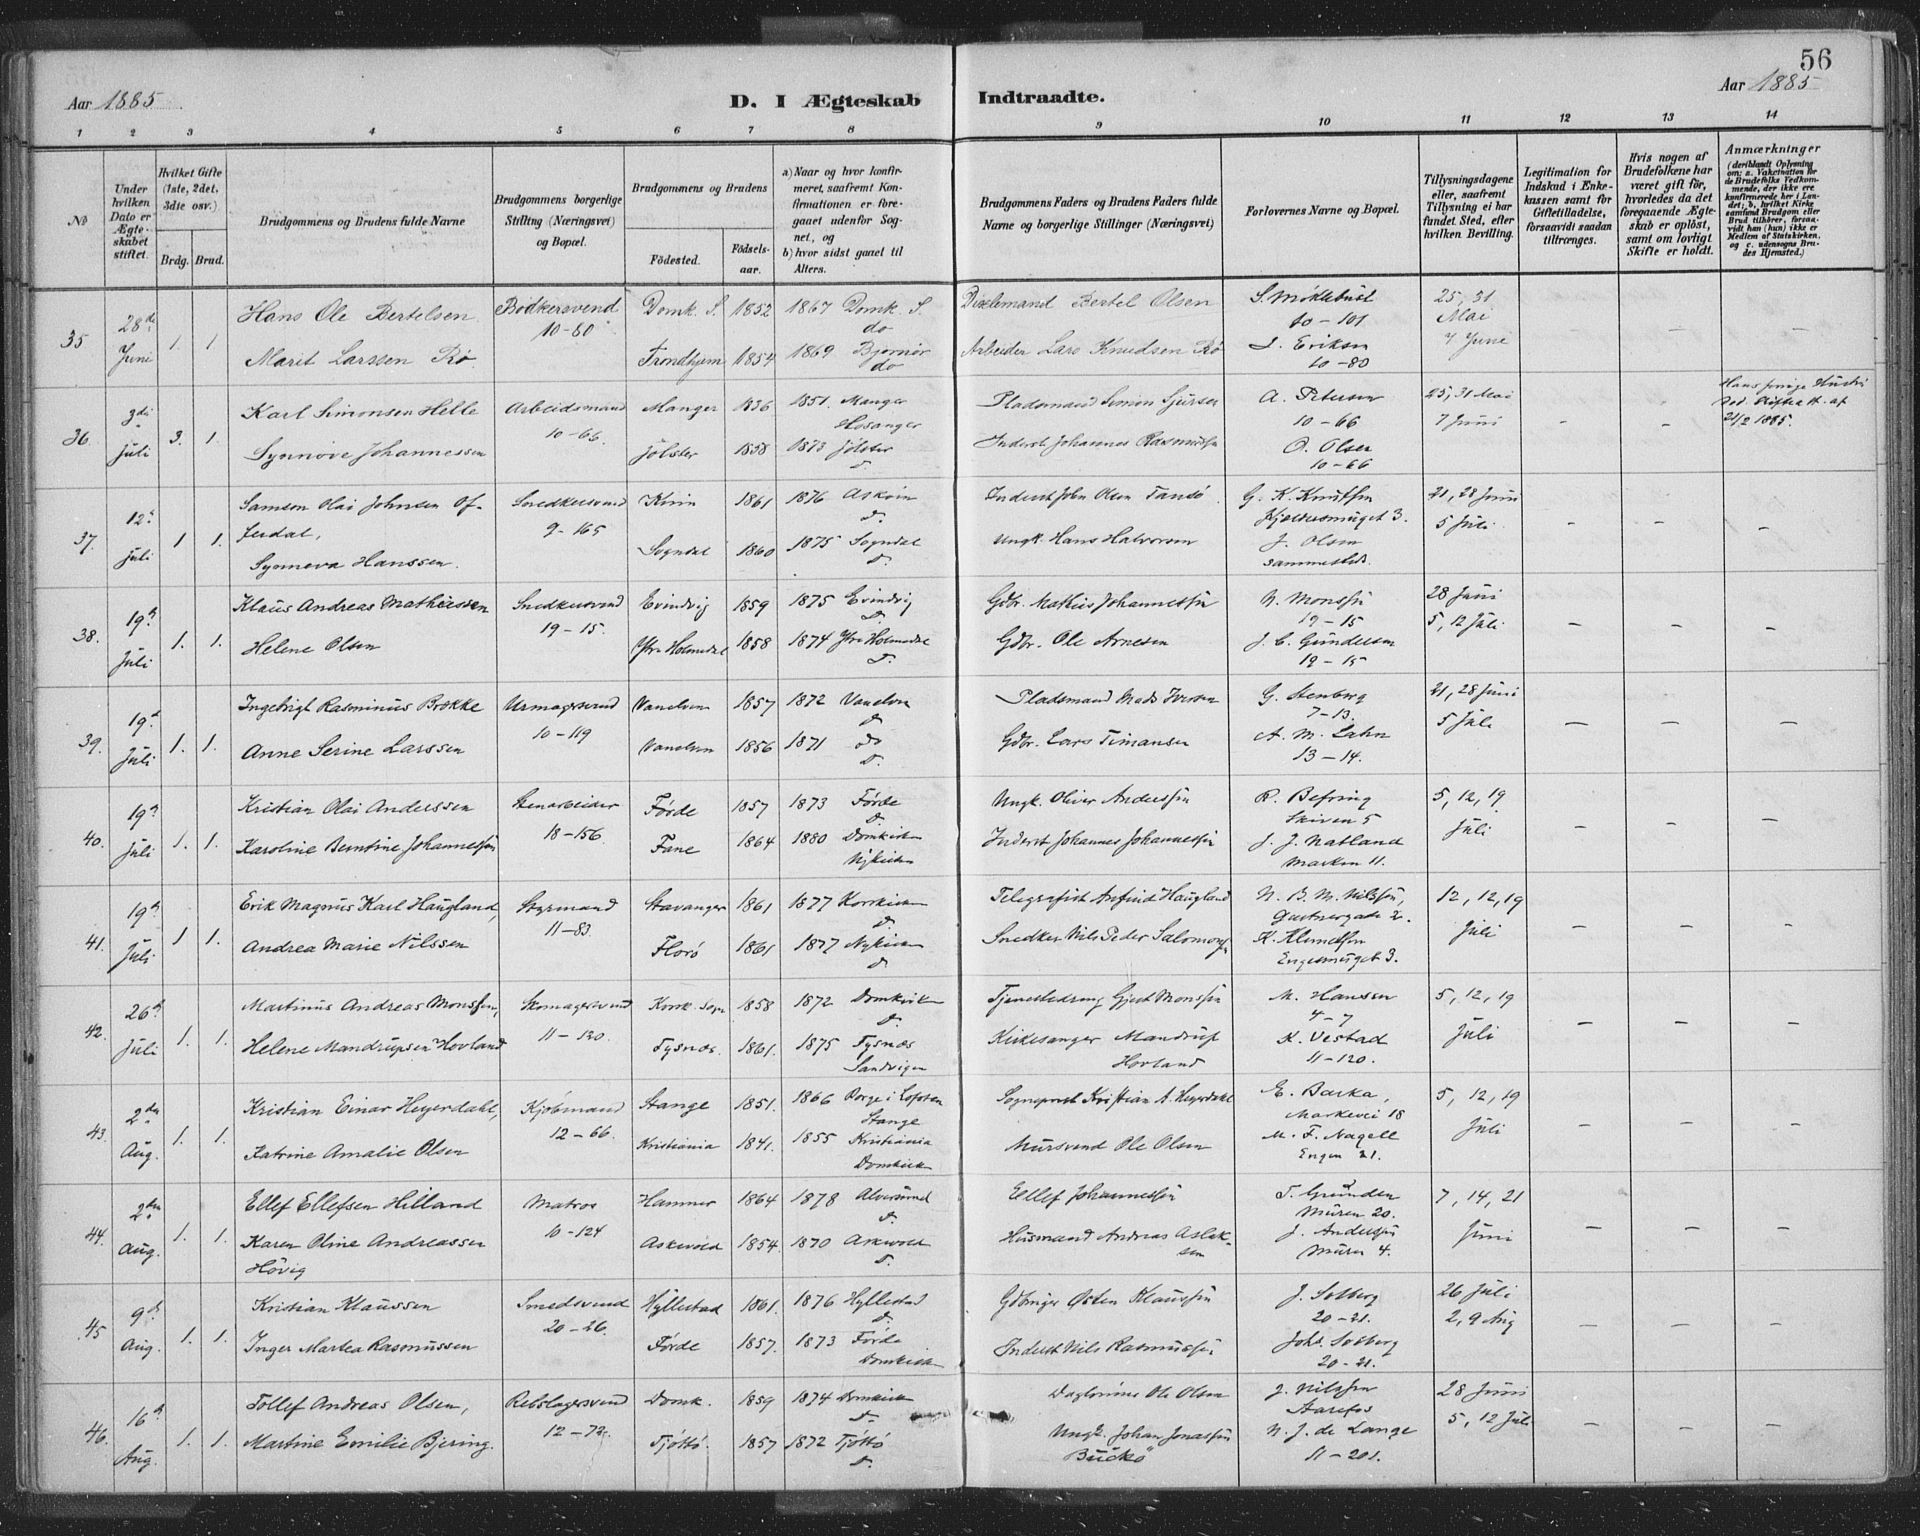 56
Aar 1885
D. I Ægteskab Indtraadte.
Aar 1885
1 2 3 4 5 6 7 8 9 10 11 12 13 14
No
Under hvilken Dato er Ægteskabet stiftet.
Hvilket Gifte (1ste, 2det, 3die osv.)
Brdg. Brud.
Brudgommens og Brudens fulde Navne
Brudgommens borgerlige Stilling (Næringsvei) og Bopæl.
Brudgommens og Brudens
Fødested. Fødselsaar.
a) Naar og hvor konfirmeret, saafremt Konfirmationen er foregaaet udenfor Sognet, og
b) hvor sidst gaaet til Alters.
Brudgommens Faders og Brudens Faders fulde Navne og borgerlige Stillinger (Næringsvei)
Forlovernes Navne og Bopæl.
Tillysningsdagene eller, saafremt Tillysning ei har fundet Sted, efter hvilken Bevilling.
Legitimation for Indskud i Enkekassen samt for Giftetilladelse, forsaavidt saadan tiltrænges.
Hvis nogen af Brudefolkene har været gift før, hvorledes da det foregaaende Ægteskab er opløst, samt om lovligt Skifte er holdt.
Anmærkninger
(deriblandt Oplysning om: a. Vakcination for de Brudefolks Vedkommende, der ikke ere konfirmerede her i Landet; b. hvilket Kirkesamfund Brudgom eller Brud tilhører, forsaavidt han (hun) ikke er Medlem af Statskirken, og c. udensogns Brudes Hjemsted.)
35 28de Juni 1. 1
Hans Ole Bertelsen Bødkersvend 10-80 Domk. S. 1852 1867 Domk. S. do Bertel Olsen S. Møklebust 10-101 25, 31 Mai
Marit Larssen Rø Trondhjem 1854 1869 Bjørnør do Arbeider Lars Knudsen Rø Eriksen 10-80 7 Juni
36. 3di Juli 3. 1.
Karl Simonsen Helle Arbeidsmand 10-66 Manger 1836 1851. Manger Hosanger Pladsmand Simon Sjursen A. Petersen 10-66 25, 31 Mai
Synnøve Johannessen Jølster 1838 1873 Jølster d. Inderst Johannes Rasmussen O. Olsen 10-66 7 Juni
Hans forrige Hustru 21/2 1885.
37. 12te Juli 1 1.
Samson Olai Johnsen Offerdal, Snedkersvend 9-165 Kinn 1861 1876 Askvin d. Inderst John Olsen Tansø G. K. Knutsen 3. 21, 28 Juni
Synneva Hanssen. Sogndal 1860 1875 Sogndal d. Ungk. Hans Halvorsen J. Olsen sammesteds 5 Juli
38. 19de Juli 1. 1.
Klaus Andreas Mathiassen Snedkersvend 19-15. Evindvig 1859 1875 Evindvig d. Gdbr. Mathias Johannessen N. Monssen 19-15 28 Juni
Helene Olsen Ytre Holmedal 1858 1874 Ytre Holmedal d. Gdbr. Ole Arnesen J. C. Gundersen 19-15 5, 12 Juli
39. 19de Juli 1. 1.
Ingebrigt Rasminus Brække Urmagersvend 10-119 Vanelven 1857 1872 Vanelven d. Pladsmand Mads Iversen G. Stenberg 7-13. 21, 28 Juni
Anne Serine Larssen Vanelven 1856 1871 do d. Gdbr. Lars Timansen A. M. Lahn 13-14. 5 Juli
40. 19de Juli 1. 1.
Kristian Olai Anderssen Stenarbeider 18-156 Førde 1857 1873 Førde d. Ungk. Oliver Anderssen R. Befring Skiven 5 5, 12, 19
Karoline Berntine Johannessen Fane 1864 1880 Domkirken Nykirken Inderst Johannes Johannessen J. J. Natland Marken 11. Juli
41. 19de Juli 1 1.
Erik Magnus Karl Haugland, Styrmand 11-83 Stavanger 1861 1877 Korskirken d. Telegrafist Anfind Haugland N. B. M. Nilssen, Gartnergade 2. 12, 12, 19
Andrea Marie Nilssen Florø 1861 1877 Nykirken d. Snedker Nils Peder Salomonsen K. Klemetsen Engesmuget 3. Juli
42. 26de Juli 1. 1.
Martinus Andreas Monssen, Skomagersvend 11-120 Korsk. Sogn 1858 1872 Domkirken d. Gjert Monssen M. Hanssen 4-7 5, 12, 19
Helene Mandrupsen Hovland Tysnæs. 1861. 1875 Tysnæs Sandvigen Kirkesanger Mandrup Hovland K. Vestad 11-120. Juli
43. 2den Aug. 1. 1.
Kristian Einar Heyerdahl, Kjøbmand 12-66. Stange 1851. 1866 Borge i Lofoten Stange Sogneprest Kristian A. Heyerdahl E. Barka, Markevei 18 5, 12, 19
Katrine Amalie Olsen Kristiania 1841. 1855 Kristiania Domkirken Mursvend Ole Olsen M. F. Nagell Engen 21. Juli
44. 2den Aug. 1. 1.
Ellef Ellefsen Hilland Matros 10-124 Hammer 1864 1878 Alversund d. Ellef Johannessen T. Grunden Muren 20. 7, 14, 21
Karen Oline Andreassen Høvig Askevold 1854. 1870 Askevold d. Husmand Andreas Aslaksen J. Anderssen Muren 4. Juni
45 9de Aug. 1. 1.
Kristian Klaussen Smedsvend 20-26. Hyllestad 1861. 1876 Hyllestad d. Gdbruger Østen Klaussen J. Solberg 20-21. 26 Juli
Inger Martea Rasmussen Førde 1857. 1873 Førde Domkirken Inderst Nils Rasmussen Johs. Solberg 20-21. 2, 9 Aug
46. 16de Aug. 1. 1.
Tollef Andreas Olsen, Rebslagersvend 12-72. Domk. 1859 1874 Domkirken d. Daglønner Ole Olsen J. Nilssen Aarefos 28 Juni
Martine Emilie Bjering. Tjøttø. 1857 1872 Tjøttø d. Ungk. Johan Jonassen Buckø N. J. de Lange 11-201. 5, 12 Juli